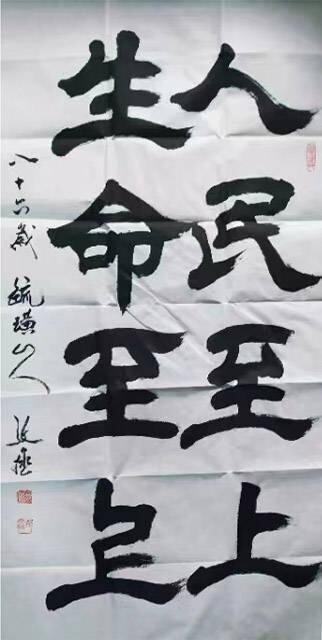 人民至上
生命至上
八十六歲 毓璜山人